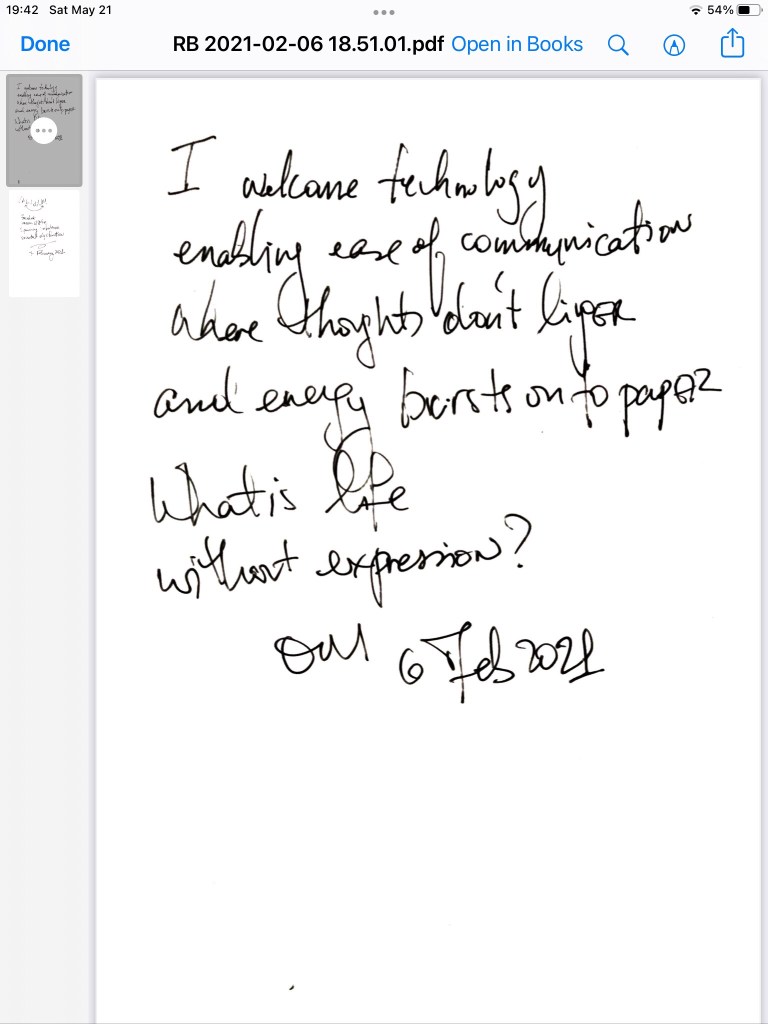 19:42 Sat May 21
54%
Done
RB 2021-02-06 18.51.01.pdf
Open in Books
I welcome technology
enabling ease of communication
where thoughts don't linger
and energy bursts on to paper
What is life
without expression?
6 Feb 2021